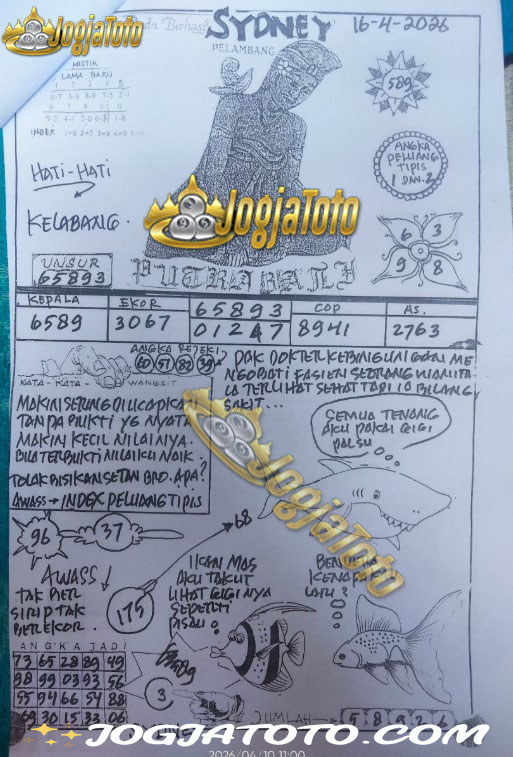 JogjaToto
SYDNEY
16-4-2026
PELAMBANG
MISTIK
LAMA BARU
INDEX
589
ANGKA
PELUANG
TIPIS
1 DAN 2
HATI-HATI
KELABANG.
JogjaToto
6 3
9 8
UNSUR
65893
PUTRA BALI
KEPALA
6589
EKOR
3067
65893
01247
COP
8941
AS.
2763
ANGKA REJEKI
60 57 82 39
KATA-KATA WANGSIT
SAKIT...
TANPA BUKTI YG NYATA
MAKIN KECIL NILAINYA.
BILA TERBUKTI NILAIKU NAIK.
TOLAK BISIKAN SETAN BRO. APA?
AWASS → INDEX PELUANG TIPIS
SEMUA TENANG
AKU PAKAI GIGI
PALSU
JogjaToto
96
37
68
175
AWASS
TAK BER
SIRIP TAK
BEREKOR.
IKAN MAS
AKU TAKUT
LIHAT GIGINYA
SEPERTI
PISAU
KENAPA
LARI?
ANGKA JADI
73 65 28 89 49
98 99 03 93 56
55 94 66 54 88
69 30 15 33 06
3
JUMLAH → 5 8 9 2 6
JOGJATOTO.COM
2026/04/10 11:00